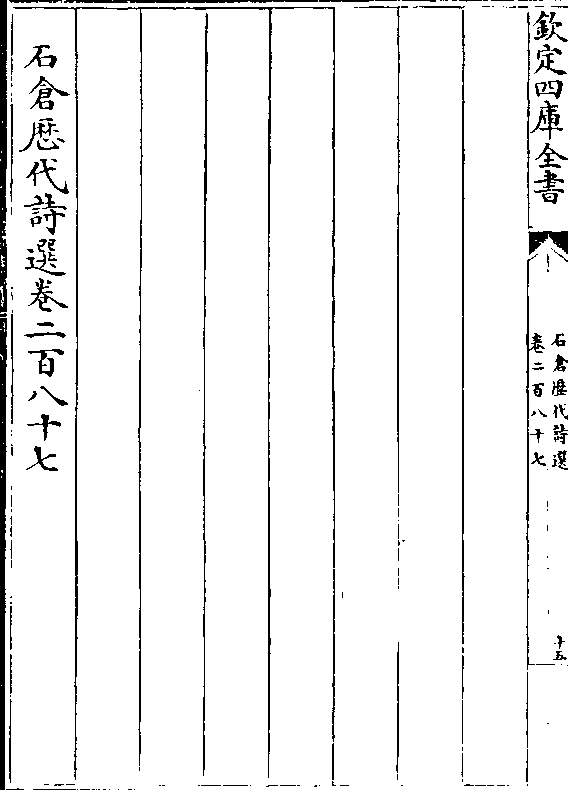 欽定四庫全書
石倉歴代詩選
卷二百八十七
十五
石倉歴代詩選卷二百八十七